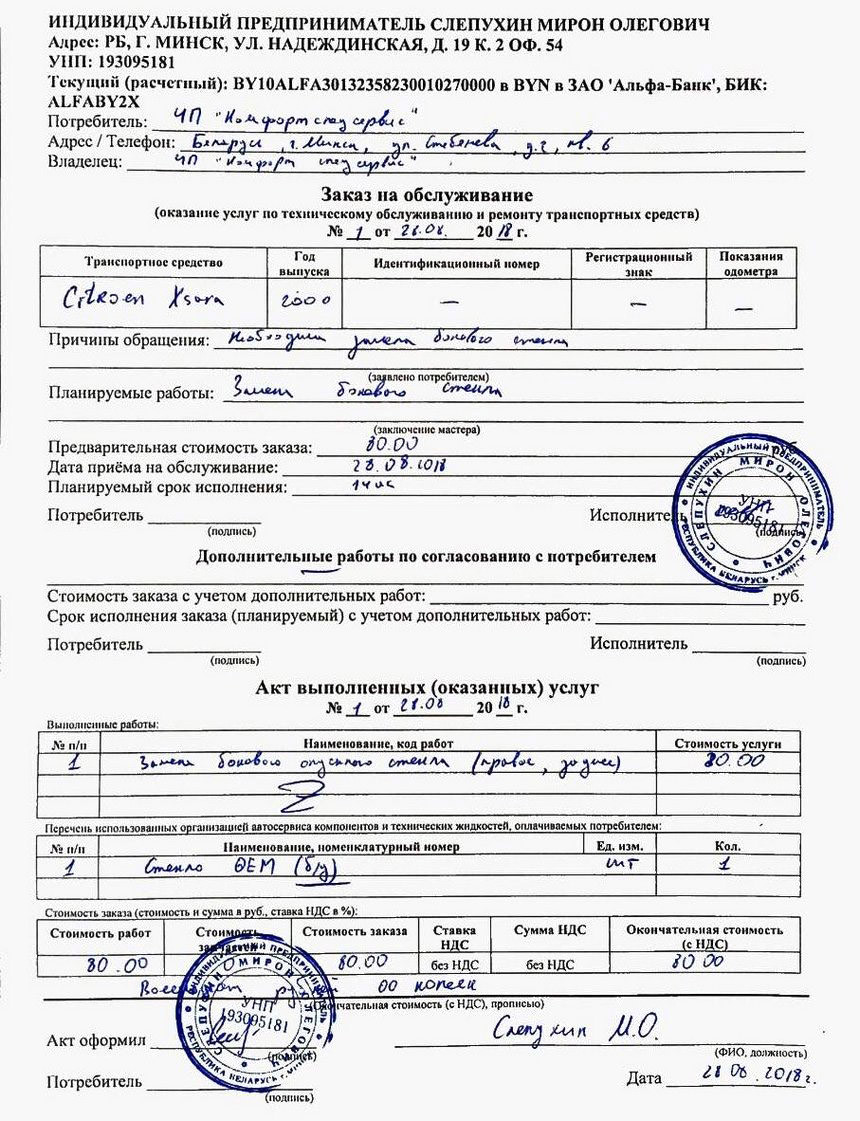 ИНДИВИДУАЛЬНЫЙ ПРЕДПРИНИМАТЕЛЬ СЛЕПУХИН МИРОН ОЛЕГОВИЧ
Адрес: РБ, Г. МИНСК, УЛ. НАДЕЖДИНСКАЯ, Д. 19 К. 2 ОФ. 54
УНП: 193095181
Текущий (расчетный): BY10ALFA30132358230010270000 в BYN в ЗАО 'Альфа-Банк', БИК:
ALFABY2X
Потребитель: ЧП "Комфорт спец сервис"
Адрес / Телефон: Беларусь, г. Минск, ул. д. 2, кв. 6
Владелец: ЧП "Комфорт спец сервис"
Заказ на обслуживание
(оказание услуг по техническому обслуживанию и ремонту транспортных средств)
№ 1 от 28.08. 2018 г.
Транспортное средство Год выпуска Идентификационный номер Регистрационный знак Показания одометра
Citroen Xsara 2000 — — —
Причины обращения: Необходима замена бокового стекла
(заявлено потребителем)
Планируемые работы: Замена бокового стекла
(заключение мастера)
Предварительная стоимость заказа: 80.00 руб.
Дата приёма на обслуживание: 28.08.2018
Планируемый срок исполнения: 1 час
Потребитель Исполнитель
(подпись) (подпись)
ИНДИВИДУАЛЬНЫЙ ПРЕДПРИНИМАТЕЛЬ
СЛЕПУХИН МИРОН ОЛЕГОВИЧ
УНП
193095181
РЕСПУБЛИКА БЕЛАРУСЬ г. МИНСК
Дополнительные работы по согласованию с потребителем
Стоимость заказа с учетом дополнительных работ: руб.
Срок исполнения заказа (планируемый) с учетом дополнительных работ:
Потребитель Исполнитель
(подпись) (подпись)
Акт выполненных (оказанных) услуг
№ 1 от 28.08 2018 г.
Выполненные работы:
№ п/п Наименование, код работ Стоимость услуги
1 Замена бокового опускного стекла (правое, заднее) 80.00
Перечень использованных организацией автосервиса компонентов и технических жидкостей, оплачиваемых потребителем:
№ п/п Наименование, номенклатурный номер Ед. изм. Кол.
1 Стекло ОЕМ (б/у) шт 1
Стоимость заказа (стоимость и сумма в руб., ставка НДС в %):
Стоимость работ Стоимость запчастей Стоимость заказа Ставка НДС Сумма НДС Окончательная стоимость (с НДС)
80.00 80.00 без НДС без НДС 80 00
00 копеек
(Окончательная стоимость (с НДС), прописью)
ИНДИВИДУАЛЬНЫЙ ПРЕДПРИНИМАТЕЛЬ
СЛЕПУХИН МИРОН ОЛЕГОВИЧ
УНП
193095181
РЕСПУБЛИКА БЕЛАРУСЬ г. МИНСК
Акт оформил Слепухин М.О.
(подпись) (ФИО, должность)
Потребитель Дата 28 08 .2018г.
(подпись)